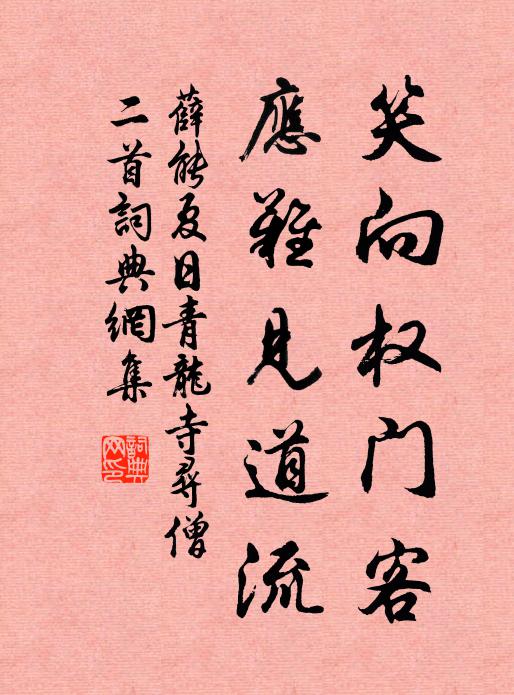 笑向权门客
應難見道流
薛能夏日青龍寺尋僧
二首詞典網集
詞典
网印